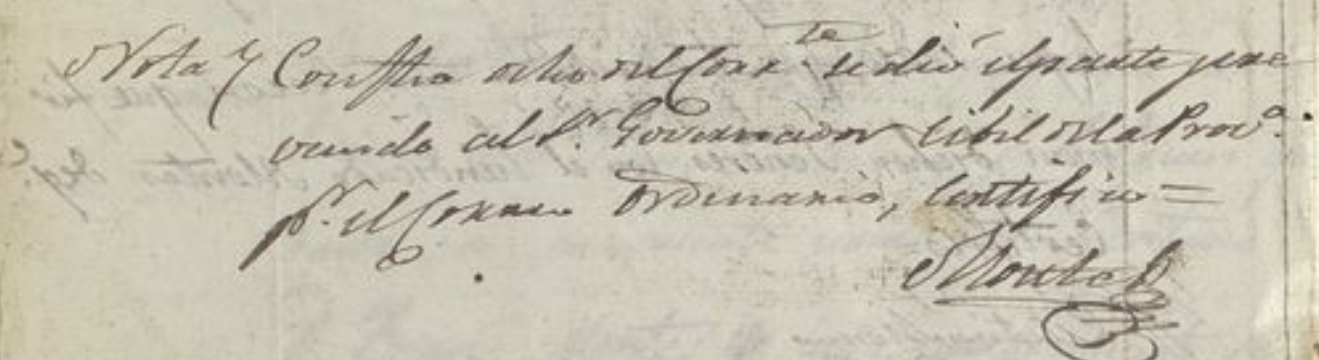 Nota } Con fha ocho del Corr.te se dió el parte preve
venido al S.r Governador Cibil de la Prov.a
p.r el Correo Ordinario, Certifico =
Montes